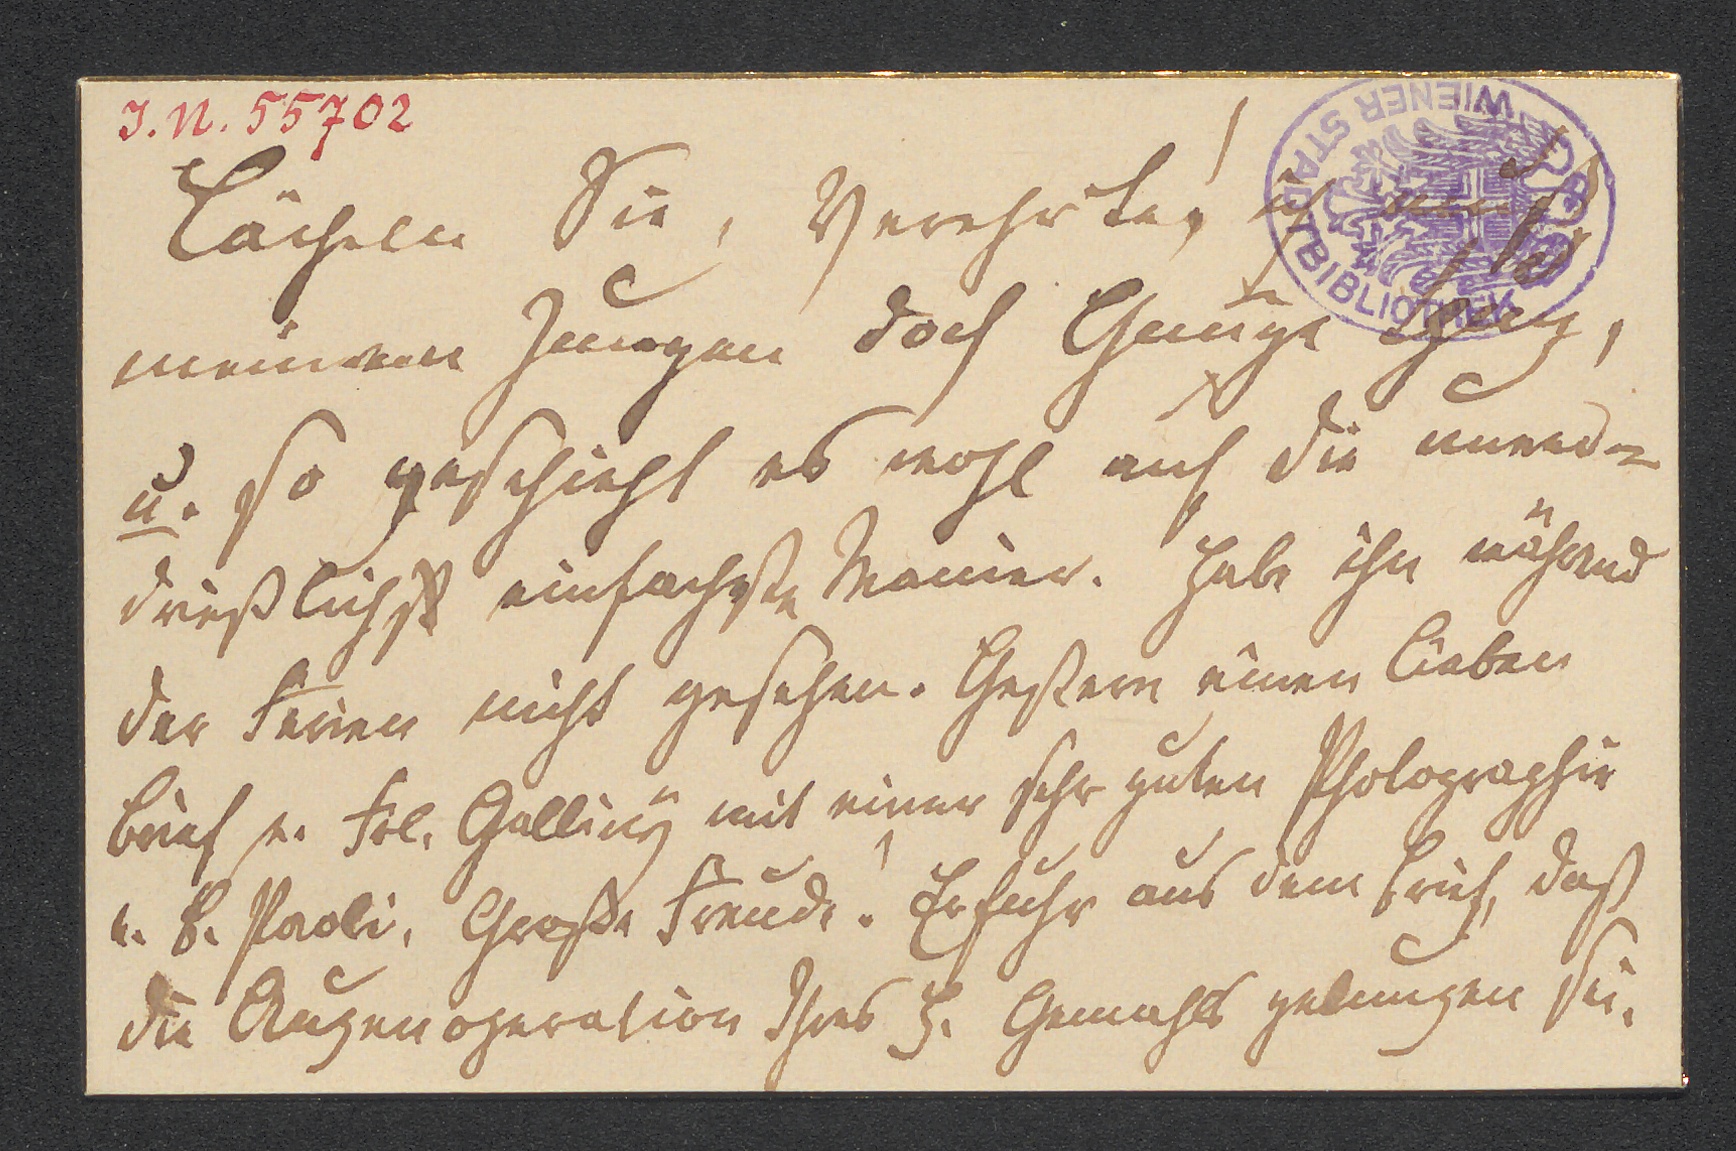 J. N. 55702
WIENER STADTBIBLIOTHEK
Lächeln Sie, Verehrte, ich
meinem Jungen doch Genüge
u. so geschieht es wohl auf die unver=
drießlichst einfachste Manier. Habe ihn während
der Ferien nicht gesehen. Gestern einen lieben
Brief v. Frl. Galliny mit einer sehr guten Photographie
v. B. Paoli. Große Freude! Erfuhr aus dem Brief, daß
die Augenoperation Ihres H. Gemahls gelungen sei.